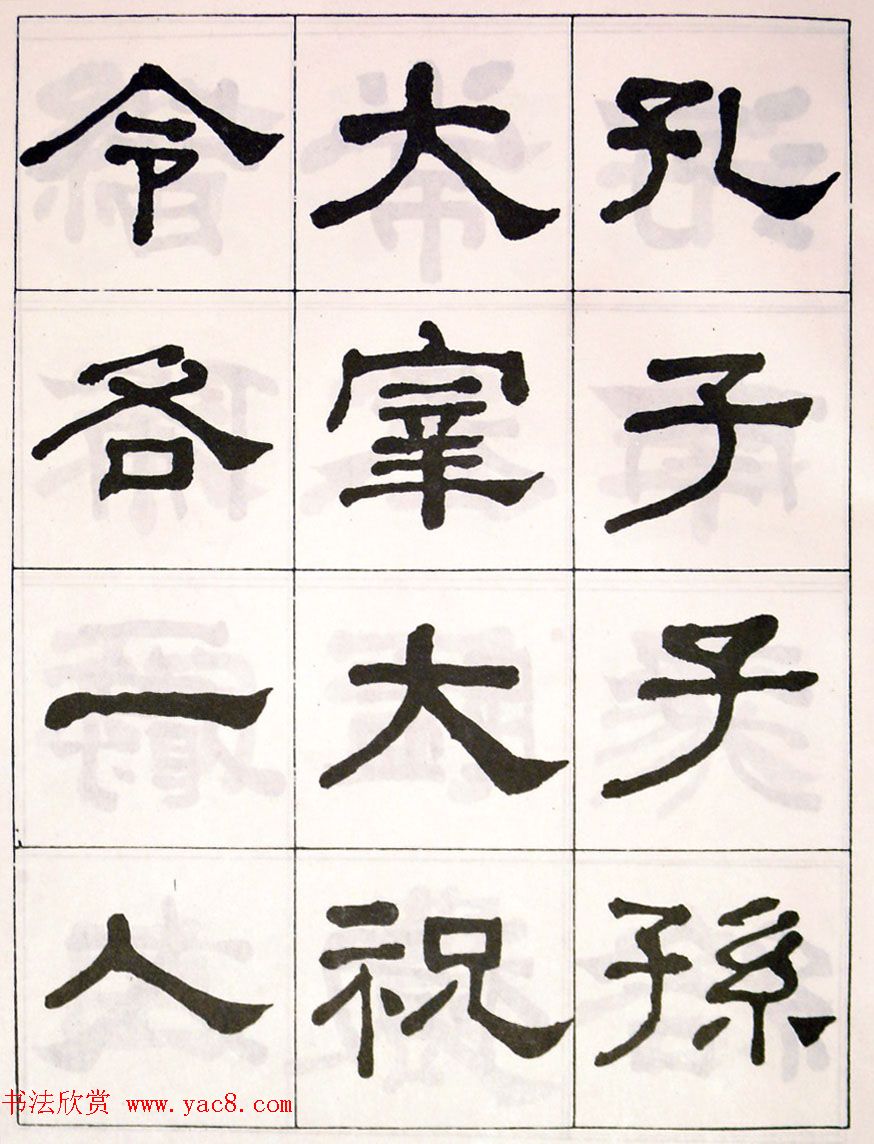 孔子子孫
大宰大祝
令各一人
书法欣赏 www.yac8.com